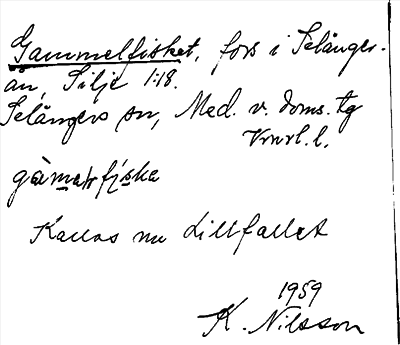 Gammelfisket, fors i Selånger-
ån, Silje 1:18.
Selångers sn, Med. v. doms. tg
Vnrl. l.
Kallas nu Lillfallet
1959
K. Nilsson